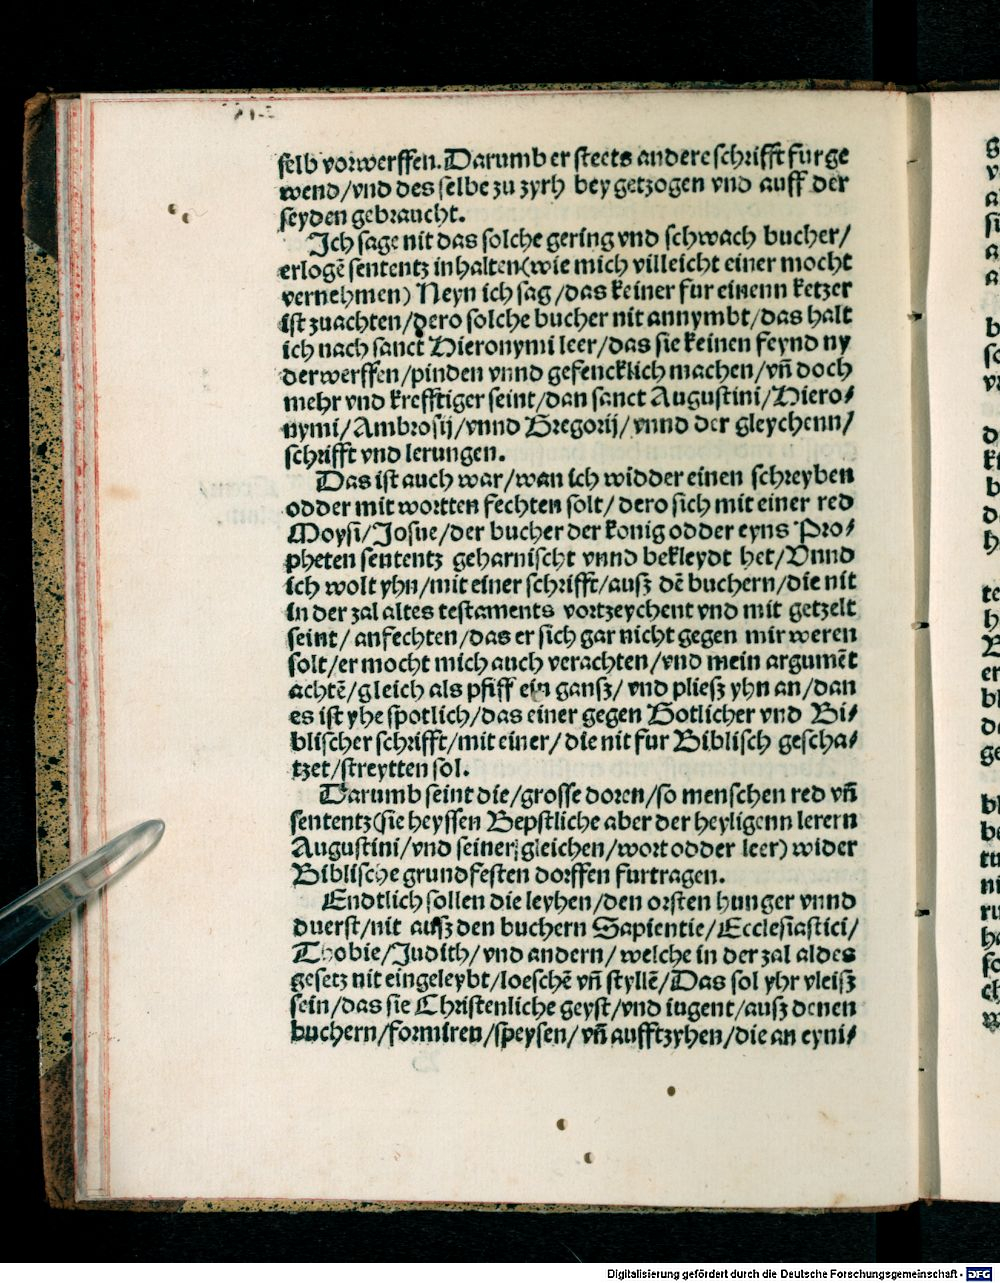 selb vorwerffen. Darumb er steets andere schrifft fur ge
wend/vnd des selbe zu zyrh bey getzogen vnd auff der
seyden gebraucht.
Ich sage nit das solche gering vnd schwach bucher/
erlogē sententz in halten(wie mich villeicht einer mocht
vernehmen) Neyn ich sag/das keiner fur einenn ketzer
ist zuachten/dero solche bucher nit annymbt/das halt
ich nach sanct Hieronymi leer/das sie keinen feynd ny
derwerffen/pinden vnnd gefencklich machen/vn̄ doch
mehr vnd krefftiger seint/dan sanct Augustini/Hiero⸗
nymi/Ambrosij/vnnd Gregorij/vnnd der gleychenn/
schrifft vnd lerungen.
Das ist auch war/wan ich widder einen schreyben
odder mit wortten fechten solt/dero sich mit einer red
Moysi/Josue/der bucher der konig odder eyns Pro⸗
pheten sententz geharnischt vnnd bekleydt het/Vnnd
ich wolt yhn/mit einer schrifft/ausz dē buchern/die nit
in der zal altes testaments vortzeychent vnd mit getzelt
seint/ anfechten/das er sich gar nicht gegen mir weren
solt/er mocht mich auch verachten/vnd mein argumēt
achtē/gleich als pfiff ein gansz/ vnd pliesz yhn an/dan
es ist yhe spotlich/das einer gegen Gotlicher vnd Bi⸗
blischer schrifft/mit einer/die nit fur Biblisch gescha⸗
tzet/streytten sol.
Darumb seint die/grosse doren/so menschen red vn̄
sententz(sie heyssen Bepstliche aber der heyligenn lerern
Augustini/vnd seiner gleichen/wort odder leer) wider
Biblische grundfesten dorffen furtragen.
Endtlich sollen die leyhen/den orsten hunger vnnd
duerst/nit ausz den buchern Sapientie/Ecclesiastici/
Thobie/Judith/vnd andern/welche in der zal aldes
gesetz nit eingeleybt/loeschē vn̄ styllē/Das sol yhr vleisz
sein/das sie Christenliche geyst/vnd iugent/ausz denen
buchern/formiren/speysen/vn̄ aufftzyhen/die an eyni⸗
Digitalisierung gefördert durch die Deutsche Forschungsgemeinschaft - DFG